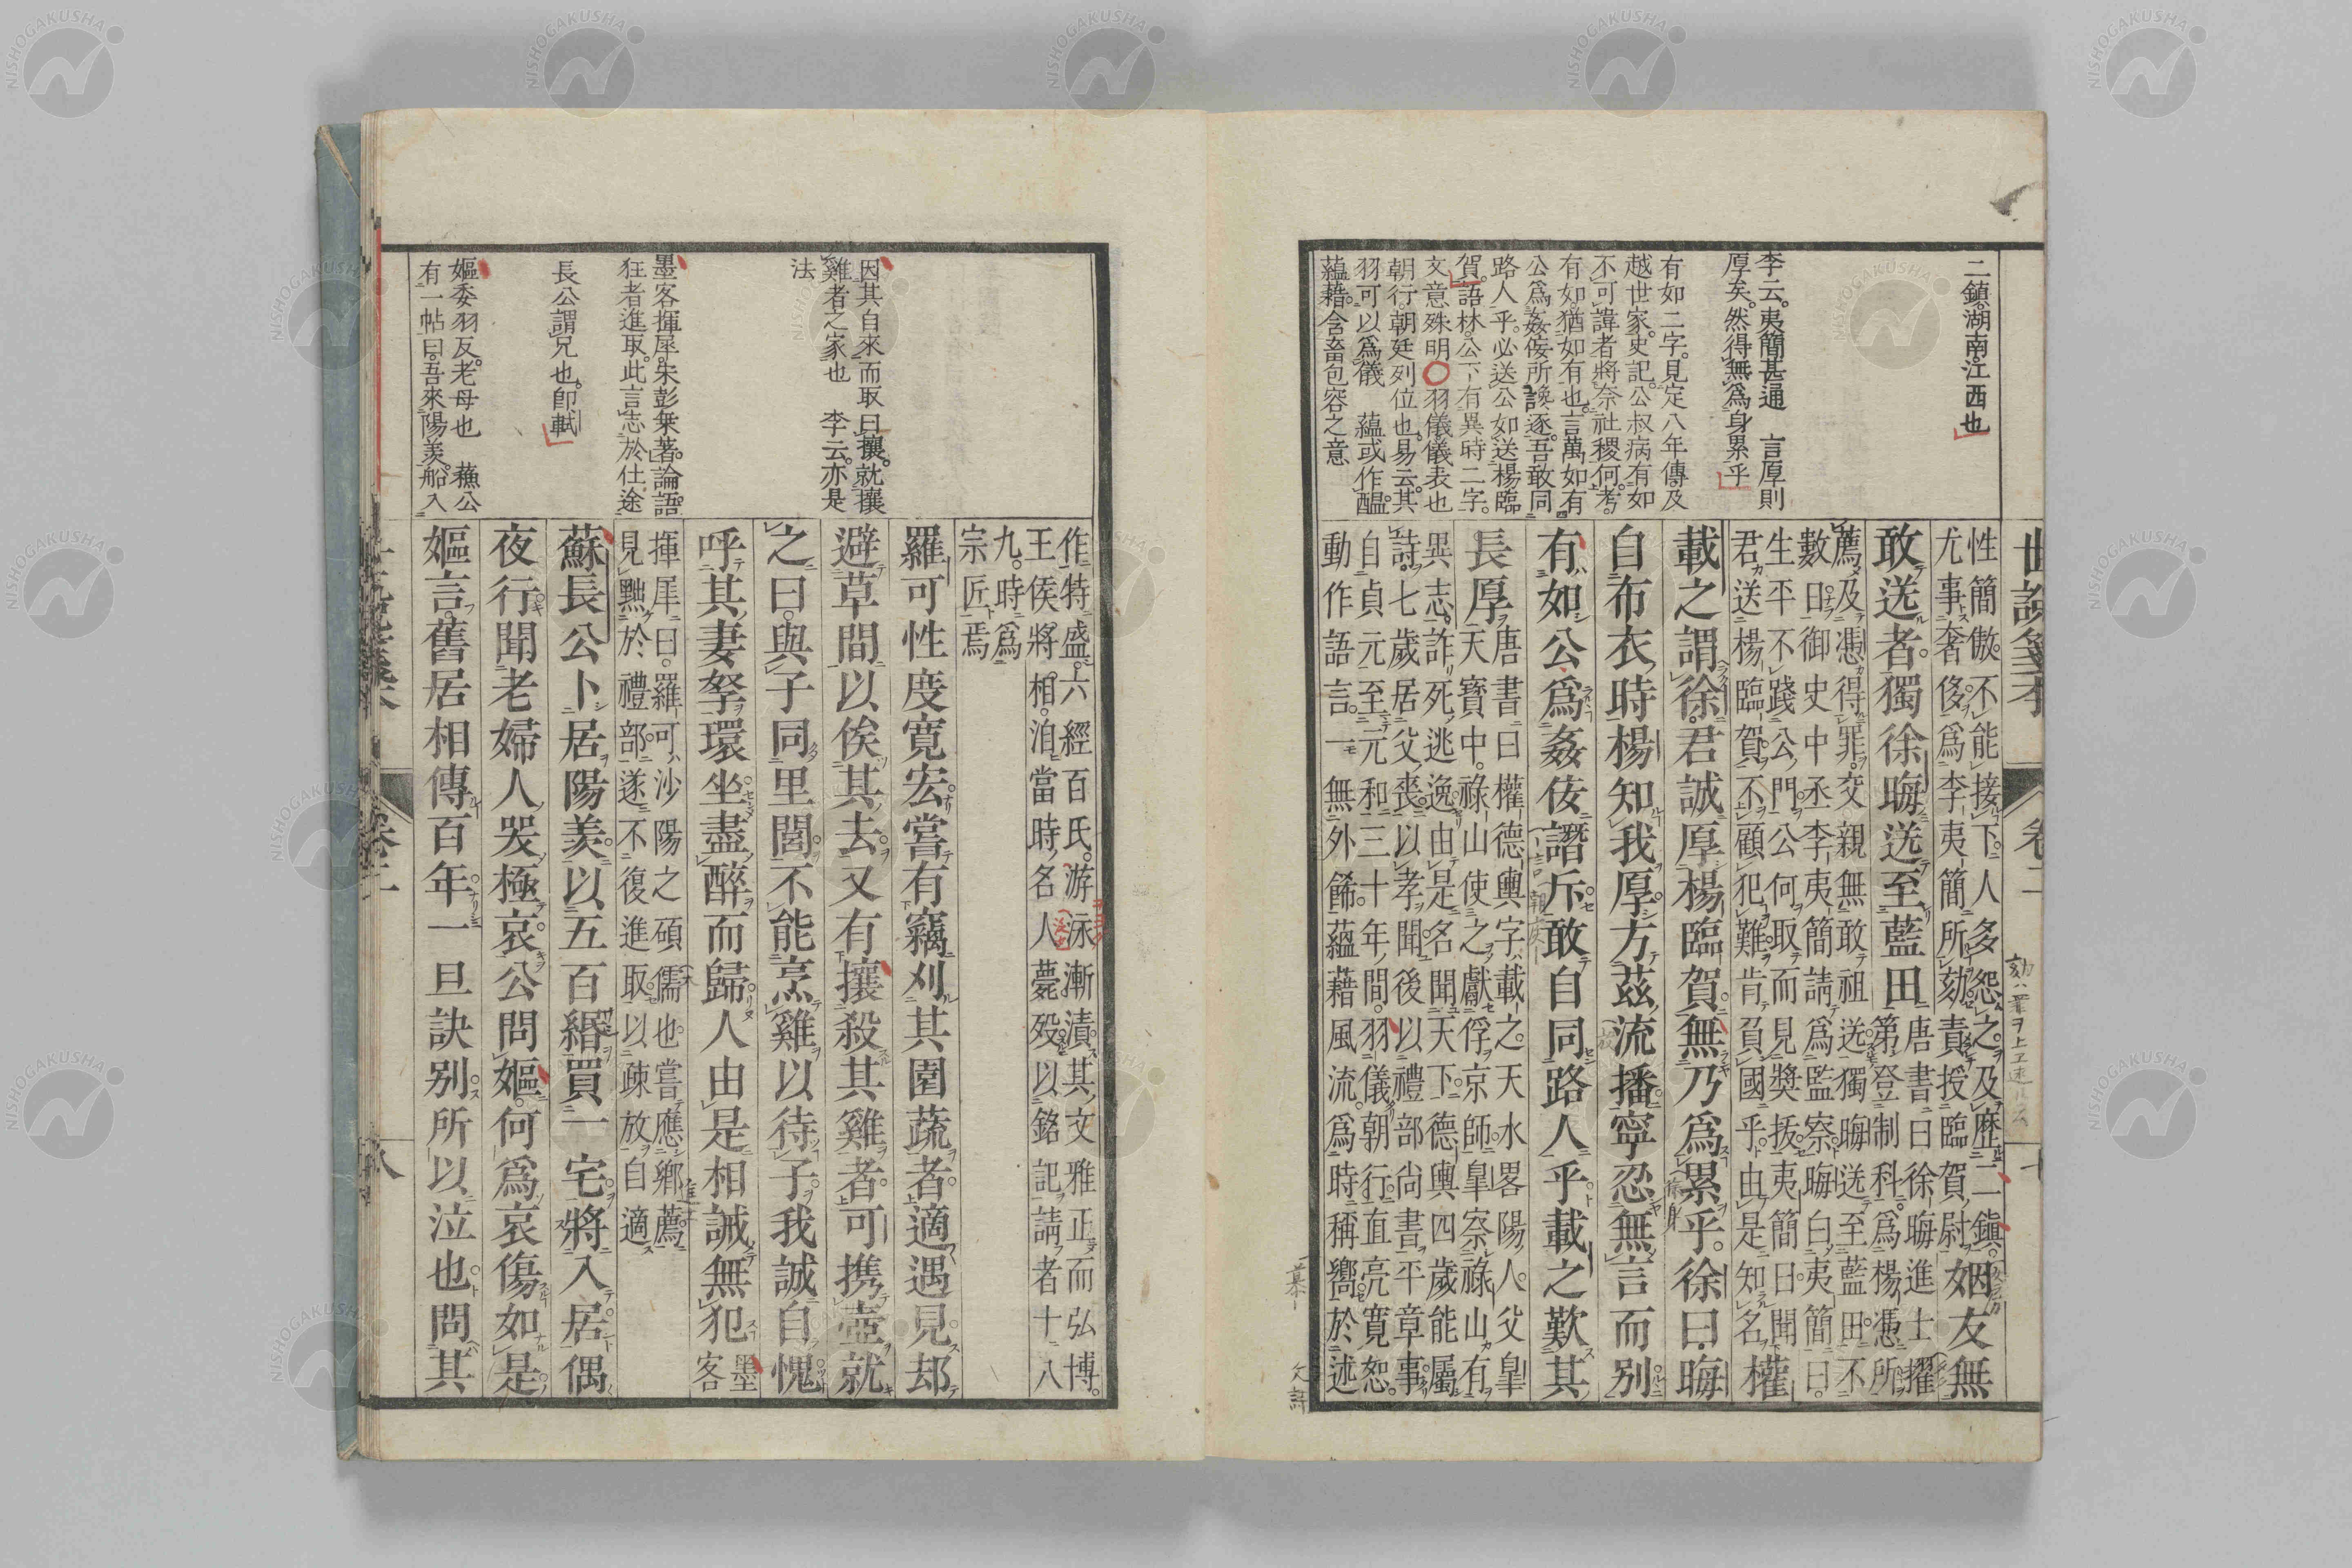 二鎮湖南江西也
李云夷簡甚通 言厚則
厚矣然得無爲身累乎
有如二字見定八年傳及
越世家史記公叔病有如
不可諱者將奈社稷何考
有如猶如有也言萬如有
公爲姦侫所譖逐吾敢同
路人乎必送公如送楊臨
賀語林公下有異時二字
文意殊明〇羽儀儀表也
朝行朝廷列位也易云其
羽可以爲儀 蘊或作醖
蘊藉含畜包容之意
性簡傲不能接下人多怨之及歷二鎮
尤事奢侈爲李夷簡所劾責授臨賀尉
姻友無
敢送者獨徐晦送至藍田
唐書曰徐晦進士擢
第登制科爲楊憑所
薦及憑得罪交親無敢祖送獨晦送至藍田不
數日御史中丞李夷簡請爲監察晦白夷簡曰
生平不踐公門公何取而見奬拔夷簡曰聞
君送楊臨賀不顧犯難肯負國乎由是知名
權
載之謂徐君誠厚楊臨賀無乃爲累乎徐曰晦
自布衣時楊知我厚方茲流播寧忍無言而別
有如公爲姦侫譖斥敢自同路人乎載之歎其
長厚
唐書曰權德輿字載之天水畧陽人父皐
天寶中祿山使之獻俘京師皐察祿山有
異志詐死逃逸由是名聞天下德輿四歲能屬
詩七歲居父喪以孝聞後以禮部尚書平章事
自貞元至元和三十年間羽儀朝行直亮寬恕
動作語言一無外餙蘊藉風流爲時稱嚮於述
世説箋本
卷二
因其自來而取曰攘就攘
雞者之家也 李云亦是
法
墨客揮犀朱彭乗著論語
狂者進取此言志於仕途
長公謂兄也卽軾
嫗委羽反老母也 蘓公
有一帖曰吾來陽羨船入
作特盛六經百氏游泳漸漬其文雅正而弘博
王侯將相洎當時名人薨殁以銘記請者十八
九時爲
宗匠焉
羅可性度寛宏嘗有竊刈其園蔬者適遇見却
避草間以俟其去又有攘殺其雞者可携壺就
之曰與子同里閭不能烹雞以待子我誠自愧
呼其妻孥環坐盡醉而歸人由是相誡無犯
墨
客
揮犀曰羅可沙陽之碩儒也嘗應鄉薦
見黜於禮部遂不復進取以疎放自適
蘇長公卜居陽羨以五百緡買一宅將入居偶
夜行聞老婦人哭極哀公問嫗何爲哀傷如是
嫗言舊居相傳百年一旦訣別所以泣也問其
卷二